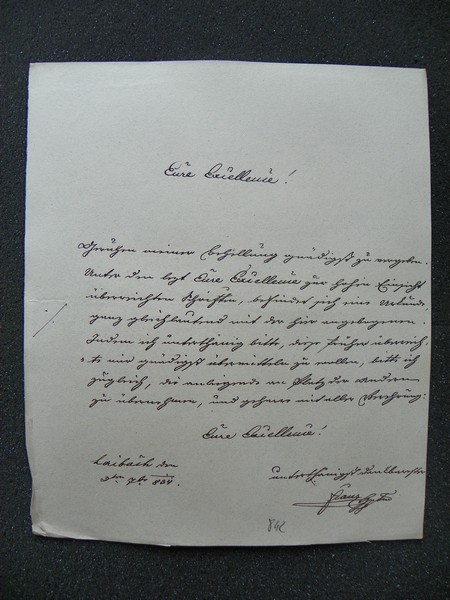 Eure Excellenze!
Geruhen meiner Behelligung gnädigst zu vergeben.
Unter den letzt Eure Excellenze zur hohen Einsicht
überreichten Schriften, befindet sich eine Urkunde,
ganz gleichlautend mit der hier angebogenen.
Indem ich unterthänig bitte, diese früher überreich-
te mir gnädigst übermitteln zu wollen, bitte ich
zugleich, die anliegende an Platz der anderen
zu übernehmen, und mit aller Verehrung:
Eure Excellenze!
Laibach den
unterthänigst
Franz
842